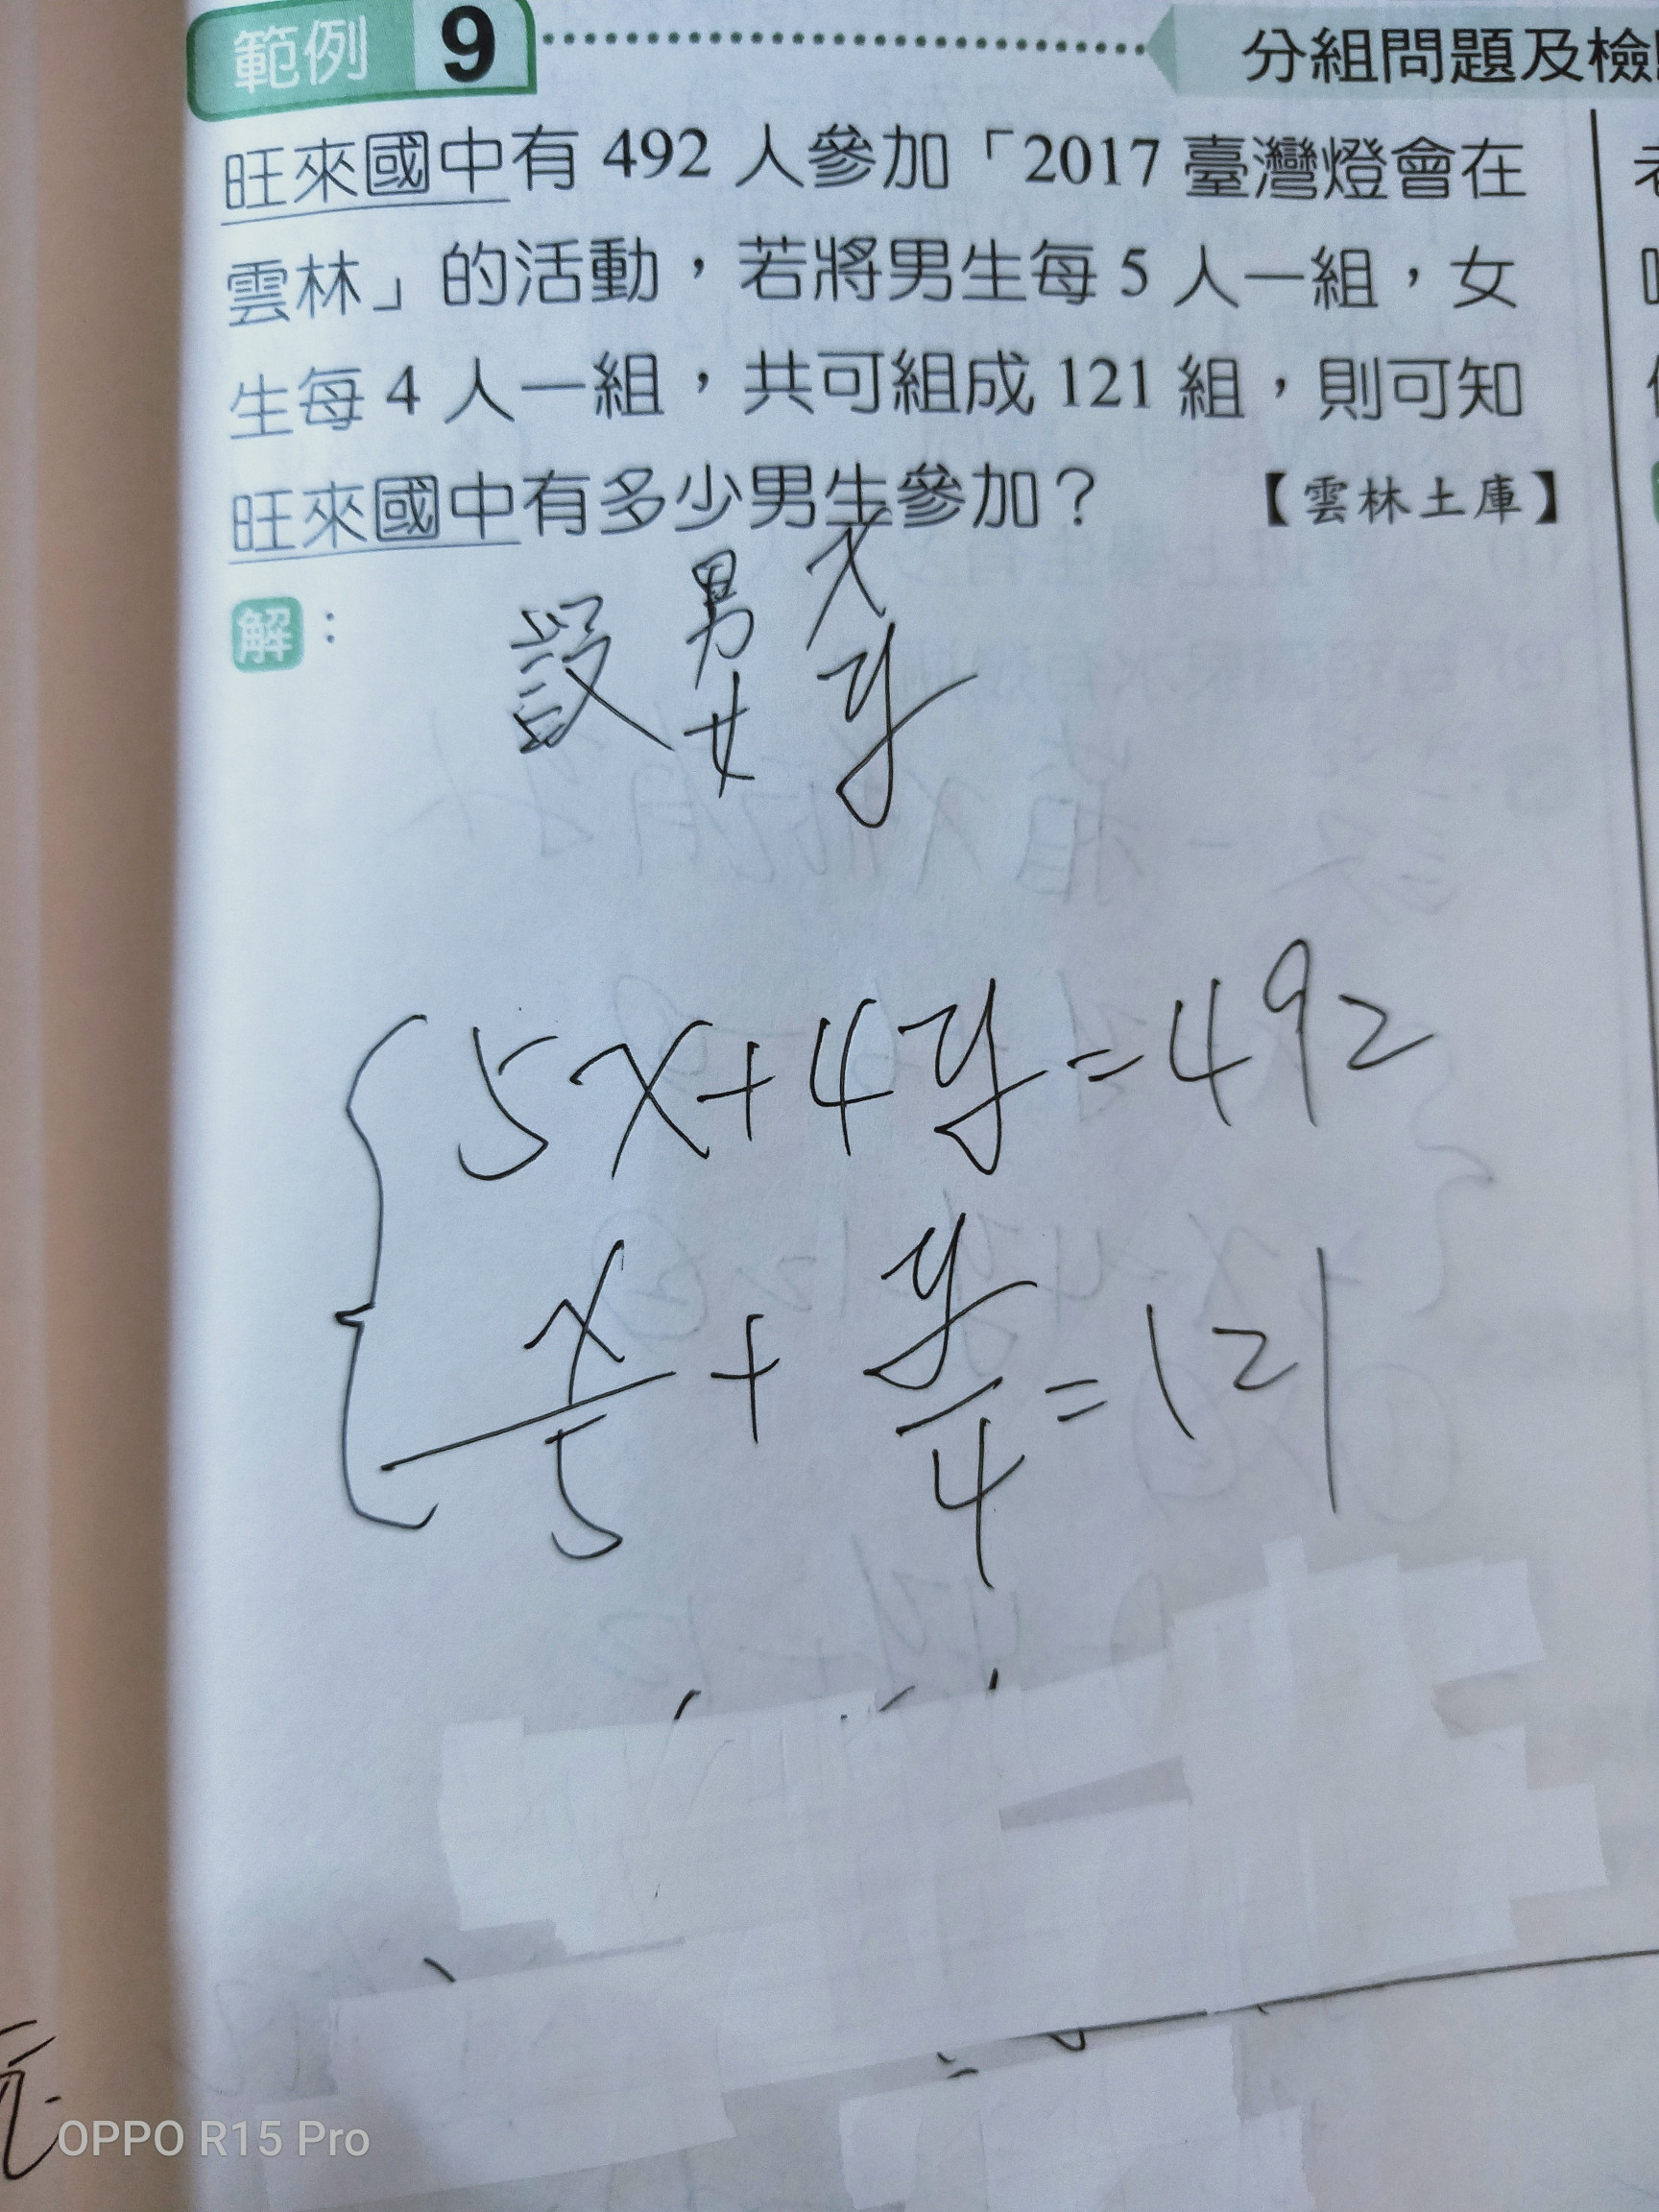 範例 9 分組問題及檢
旺來國中有 492 人參加「2017 臺灣燈會在
雲林」的活動，若將男生每 5 人一組，女
生每 4 人一組，共可組成 121 組，則可知
旺來國中有多少男生參加？ 【雲林土庫】
解：
設 男 x
女 y
5x+4y=492
x/5 + y/4 = 121
OPPO R15 Pro